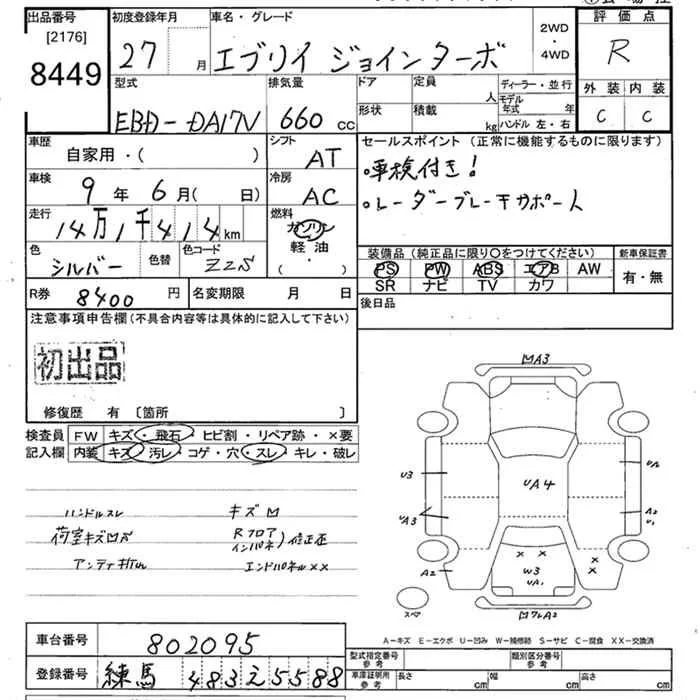 出品番号
[2176]
8449
初度登録年月
27 月
車名・グレード
エブリイ ジョインターボ
2WD
・
4WD
評価点
R
外装 内装
C C
型式
EBD-DA17V
排気量
660 cc
ドア
形状
定員
人
積載
kg
ディーラー・並行
モデル年式 年
ハンドル 左・右
車歴
自家用・( )
シフト
AT
セールスポイント (正常に機能するものに限ります)
・車検付き!
・レーダーブレーキサポート
車検
9年 6月( 日)
冷房
AC
走行
14万1千414km
燃料
ガソリン
軽・油
( ・ )
色
シルバー
色替
色コード
Z2S
装備品 (純正品に限り○をつけてください)
PS PW ABS エアB AW
SR ナビ TV カワ
新車保証書
有・無
R券 8400 円
名変期限 月 日
後日品
注意事項申告欄(不具合内容等は具体的に記入して下さい)
初出品
修復歴 有 〔箇所 〕
検査員
記入欄
FW キズ・飛石・ヒビ割・リペア跡・×要
内装 キズ・汚レ・コゲ・穴・スレ・キレ・破レ
ハンドルスレ
キズM
荷室キズM
Rフロア
インパネ)修正歪
アンテナ折れ
エンドパネル××
MA3
U3
UA3
UA4
A2
U1
A2
W3
UA1
××
スペア
A-キズ E-エクボ U-凹み W-補修跡 S-サビ C-腐食 XX-交換済
車台番号
802095
登録番号
練馬 483 え 5588
型式指定番号
参考
類別区分番号
参考
車庫証明用
参考
長さ cm
幅 cm
高さ cm